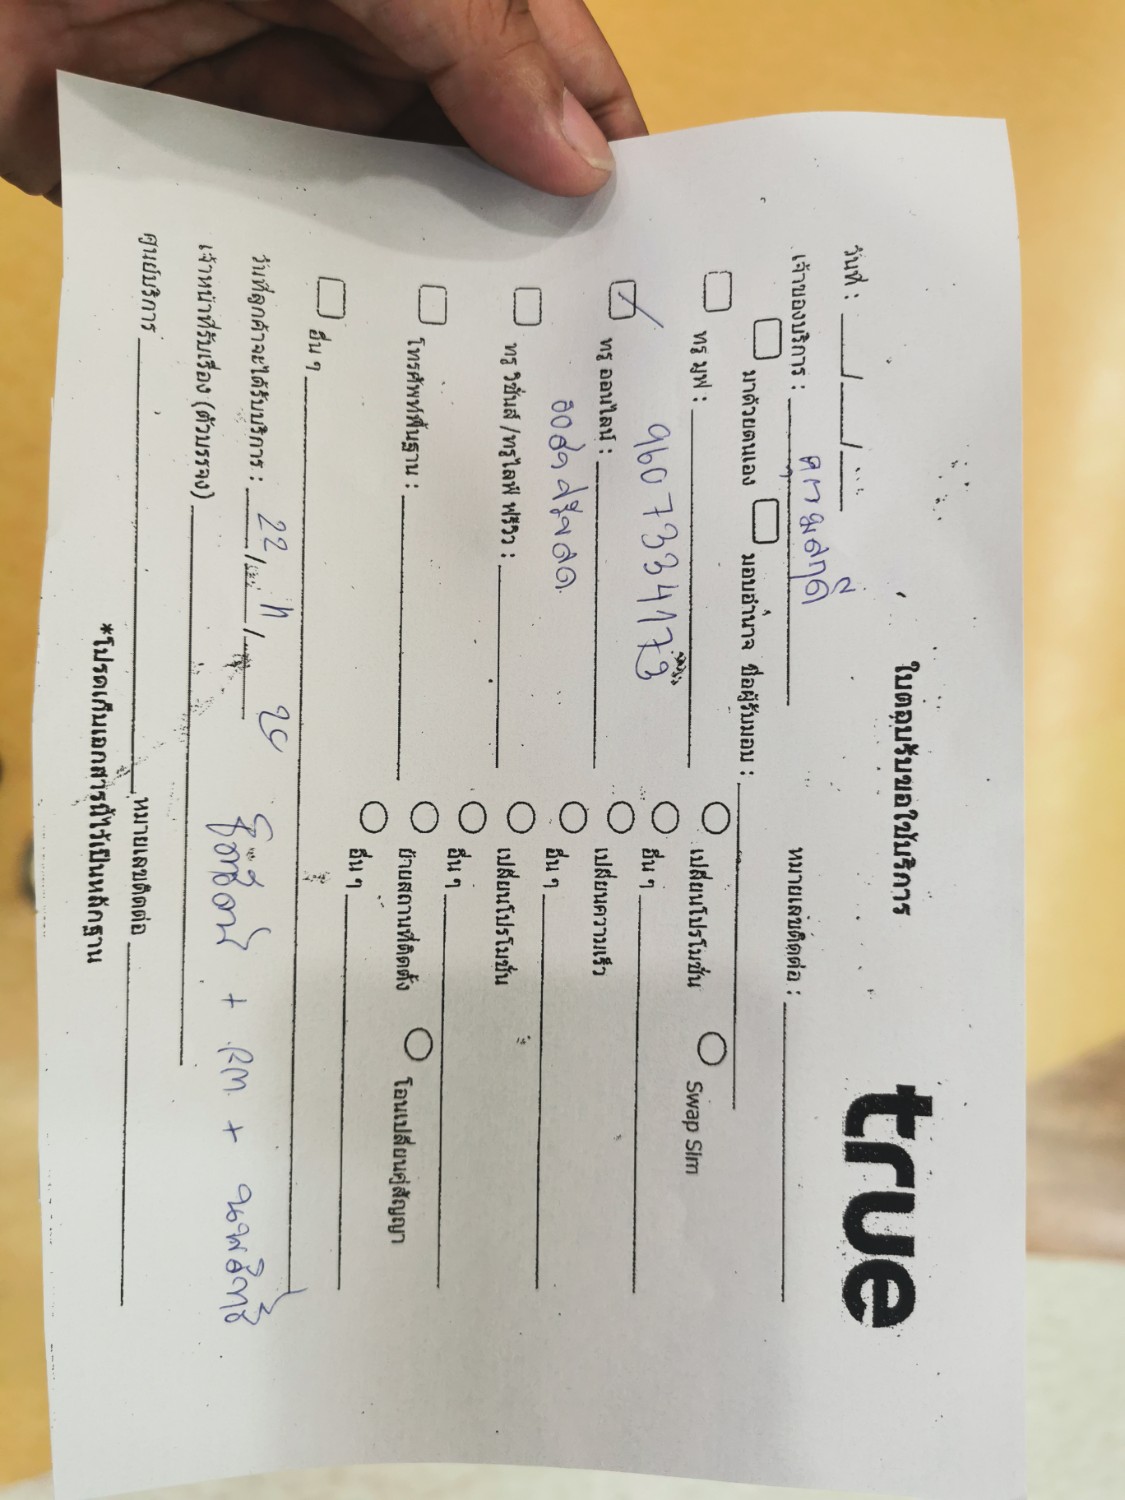 true
ใบตอบรับขอใช้บริการ
วันที่ : ____/____/____
เจ้าของบริการ : หมายเลขติดต่อ :
มาด้วยตนเอง มอบอำนาจ ชื่อผู้รับมอบ :
ทรู มูฟ : เปลี่ยนโปรโมชั่น Swap Sim
อื่น ๆ
9607334173
ทรู ออนไลน์ : เปลี่ยนความเร็ว
อื่น ๆ
ทรู วิชั่นส์ /ทรูไลฟ์ ฟรีวิว : เปลี่ยนโปรโมชั่น
อื่น ๆ
โทรศัพท์พื้นฐาน : ย้ายสถานที่ติดตั้ง โอนเปลี่ยนคู่สัญญา
อื่น ๆ
อื่น ๆ
วันที่ลูกค้าจะได้รับบริการ : 22 / 11 /
เจ้าหน้าที่รับเรื่อง (ตัวบรรจง)
ศูนย์บริการ หมายเลขติดต่อ
*โปรดเก็บเอกสารนี้ไว้เป็นหลักฐาน